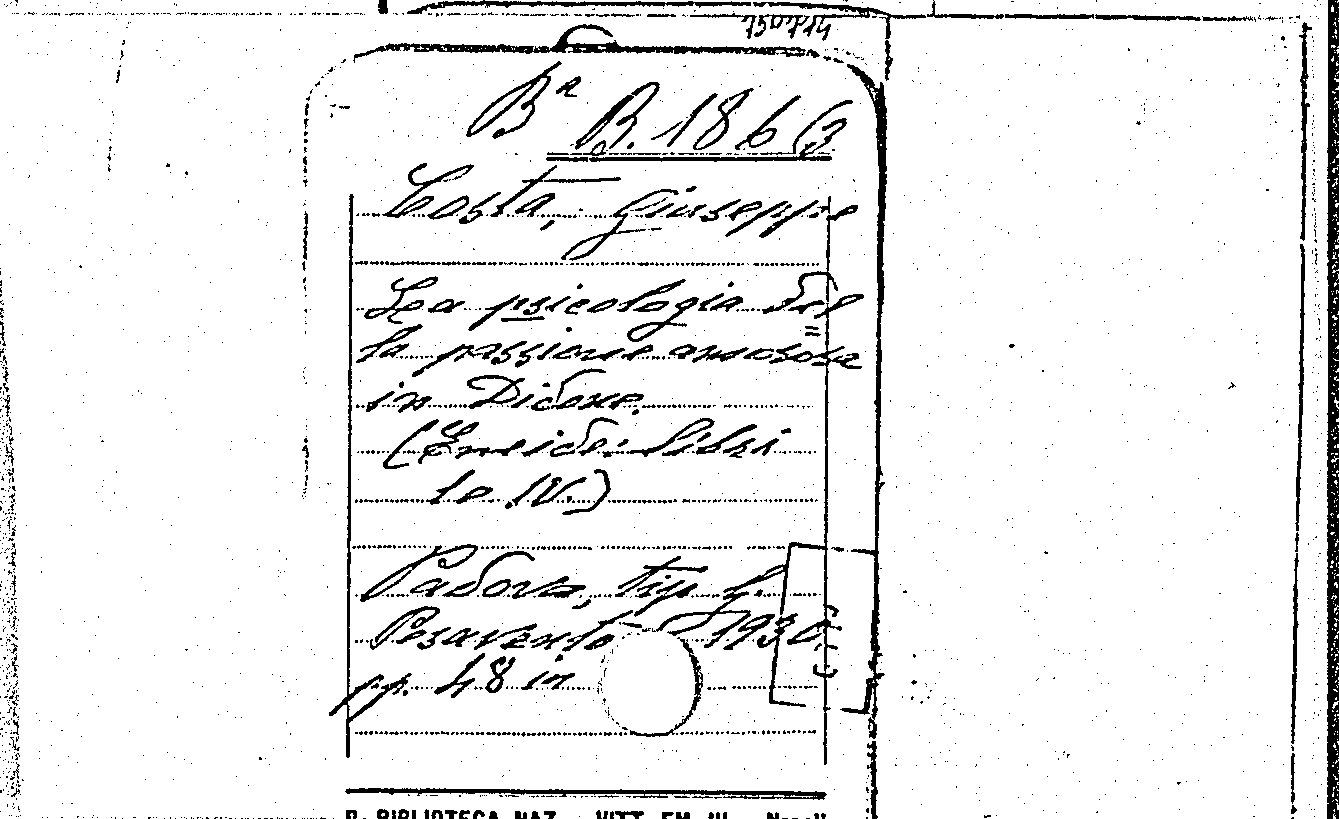 150714
Ba B. 186(3
Costa, Giuseppe
La psicologia del=
la passione amorosa
in Didone.
(Eneide: libri
lo IV.)
Padova, tip. G.
Pesavento 1930.
pp. 48 in
R. BIBLIOTECA NAZ. VITT. EM. III - Napoli